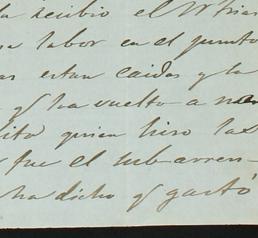 la recibio el
labor en el punto
estan caidas y la
y ha vuelto a
quien hiso las
fue el sub-arren-
ha dicho q gastó